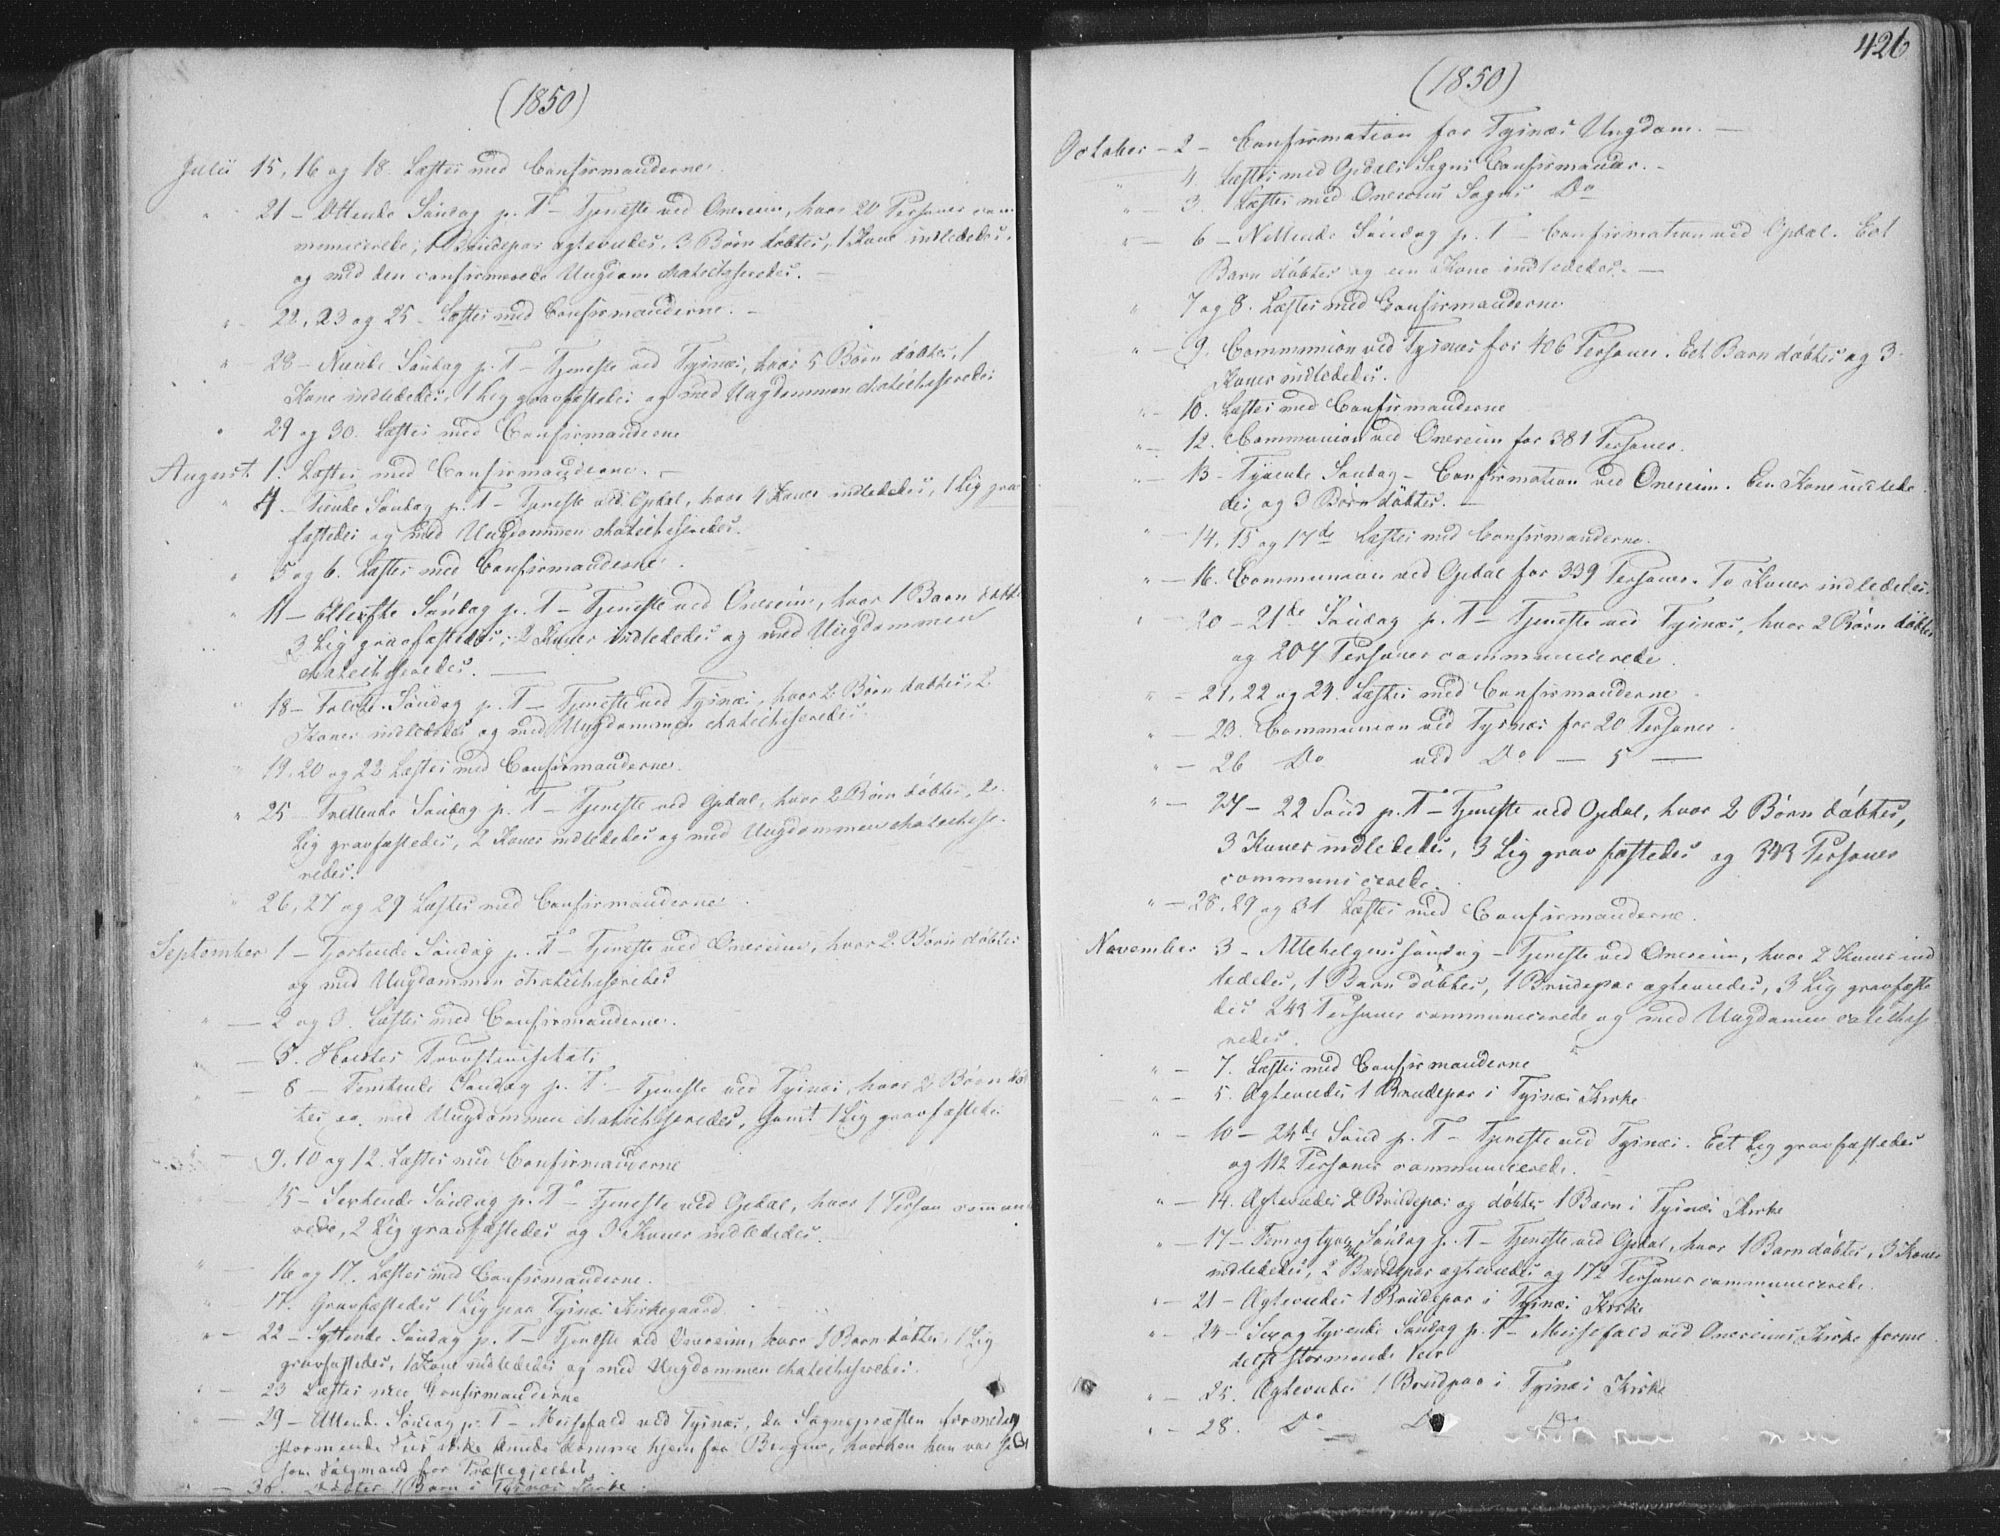 (1850)
Julii 15, 16 og 18. Læstes med Confirmanderne.
" 21 - Ottende Søndag p. T - Tjeneste ved Onereim, hvor 20 Personer com-
municerede, 1 Brudepar ægteviedes, 3 Børn døbtes, 1 Kone indlededes,
og med den confirmerede Ungdom chatechiseredes. -
" 22, 23 og 25 - Læstes med Confirmanderne. -
" 28 - Niende Søndag p. T - Tjeneste ved Tysnæs, hvor 5 Børn døbtes, 1
Kone indlededes, 1 Lig gravfæstedes og med Ungdommen chatechiseredes
" 29 og 30. Læstes med Confirmanderne
August 1. Læstes med Confirmanderne. -
" 4. Tiende Søndag p. T - Tjeneste ved Opdal, hvor 4 Koner indlededes, 1 Lig grav
fæstedes og med Ungdommen chatechiseredes.
" 5 og 6. Læstes med Confirmanderne.
" 11 - Ellevfte Søndag p. T - Tjeneste ved Onereim, hvor 1 Barn døbtes
3 Lig gravfæstedes, 2 Koner indlededes og med Ungdommen
chatechiseredes. -
" 18 - Tolvte Søndag p. T - Tjeneste ved Tysnæs, hvor 2 Børn døbtes, 2
Koner indlededes og med Ungdommen chatechiseredes.
" 19, 20 og 22 Læstes med Confirmanderne.
" 25 - Trettende Søndag p. T - Tjeneste ved Opdal, hvor 2 Børn døbtes, 2
Lig gravfæstedes, 2 Koner indlededes og med Ungdommen chatechise-
redes.
" 26, 27 og 29 Læstes med Confirmanderne.
September 1 - Fjortende Søndag p. T - Tjeneste ved Onereim, hvor 2 Børn døbtes
og med Ungdommen chatechiseredes
" - 2 og 3. Læstes med Confirmanderne.
" - 5. Holdtes
" - 8 - Femtende Søndag p. T. - Tjeneste ved Tysnæs, hvor 2 Børn døb
tes og med Ungdommen chatechiseredes, samt 1 Lig gravfæstedes
" - 9, 10 og 12. Læstes med Confirmanderne
" - 15 - Sextende Søndag p. T - Tjeneste ved Opdal, hvor 1 Person commu
rede, 2 Lig gravfæstedes og 3 Koner indlededes. -
" - 16 og 17. Læstes med Confirmanderne.
" 17. Gravfæstedes 1 Lig paa Tysnæs Kirkegaard.
" - 22 - Syttende Søndag p. T - Tjeneste ved Onereim, hvor 1 Barn døbtes, 1 Lig
gravfæstedes, 1 Kone indlededes og med Ungdommen chatechiseredes.
" - 23 Læstes med Confirmanderne
" - 29 - Attende Søndag p. T - Messefald ved Tysnæs, da Sognepræsten formedelst
stormende Veir ikke kunde komme hjem fra Bergen, hvorhen han var
som Valgmand for Præstegjeldet
" - 30. Døbtes 1 Barn i Tysnæs Kirke.
426
(1850)
October - 2 - Confirmation for Tysnæs Ungdom. -
" - 4. Læstes med Opdals Sogns Confirmander. -
" - 3. Læstes med Onereims Sogns Do
" - 6 - Nittende Søndag p. T - Confirmation ved Opdal. Eet
Barn døbtes og een Kone indlededes. -
" 7 og 8. Læstes med Confirmanderne
" - 9. Communion ved Tysnæs for 406 Personer. Eet Barn døbtes og 3
Koner indlededes.
" - 10. Læstes med Confirmanderne
" - 12. Communion ved Onereim for 381 Personer.
" - 13 - Tyvende Søndag - Confirmation ved Onereim. Een Kone indlede
des og 3 Børn døbtes. -
" - 14, 15 og 17de Læstes med Confirmanderne.
" - 16. Communion ved Opdal for 339 Personer. To Koner indlededes.
" - 20 - 21de Søndag p. T - Tjeneste ved Tysnæs, hvor 2 Børn døbtes
og 207 Personer communicerede.
" - 21, 22 og 24. Læstes med Confirmanderne.
" - 23. Communion ved Tysnæs for 20 Personer.
" - 26 Do ved Do - 5 -
" - 27 - 22 Sønd p. T - Tjeneste ved Opdal, hvor 2 Børn døbtes,
3 Koner indlededes, 3 Lig gravfæstedes og 343 Personer
communicerede.
" - 28, 29 og 31 Læstes med Confirmanderne.
November 3 - Allehelgenssøndag - Tjeneste ved Onereim, hvor 2 Koner ind
lededes, 1 Barn døbtes, 1 Brudepar ægteviedes, 3 Lig gravfæste
des 243 Personer communicerede og med Ungdomen catechise
redes.
" - 7. Læstes med Confirmanderne
" - 5. Ægteviedes 1 Brudepar i Tysnæs Kirke
" - 10 - 24de Sønd p. T - Tjeneste ved Tysnæs. Eet Lig gravfæstedes
og 112 Personer communicerede.
" - 14. Ægteviedes 2 Brudepar og døbtes 1 Barn i Tysnæs Kirke
" - 17 - Fem og tyvende Søndag p. T - Tjeneste ved Opdal, hvor 1 Barn døbtes, 3 Koner
indlededes, 2 Brudepar ægteviedes og 172 Personer communicerede
" - 21 - Ægteviedes 1 Brudepar i Tysnæs Kirke
" - 24 - Sex og tyvende Søndag p. T - Messefald ved Onereims Kirke forme
delst stormende Veir
" - 25. Ægteviedes 1 Brudpar i Tysnæs Kirke
" - 28. Do Do Do